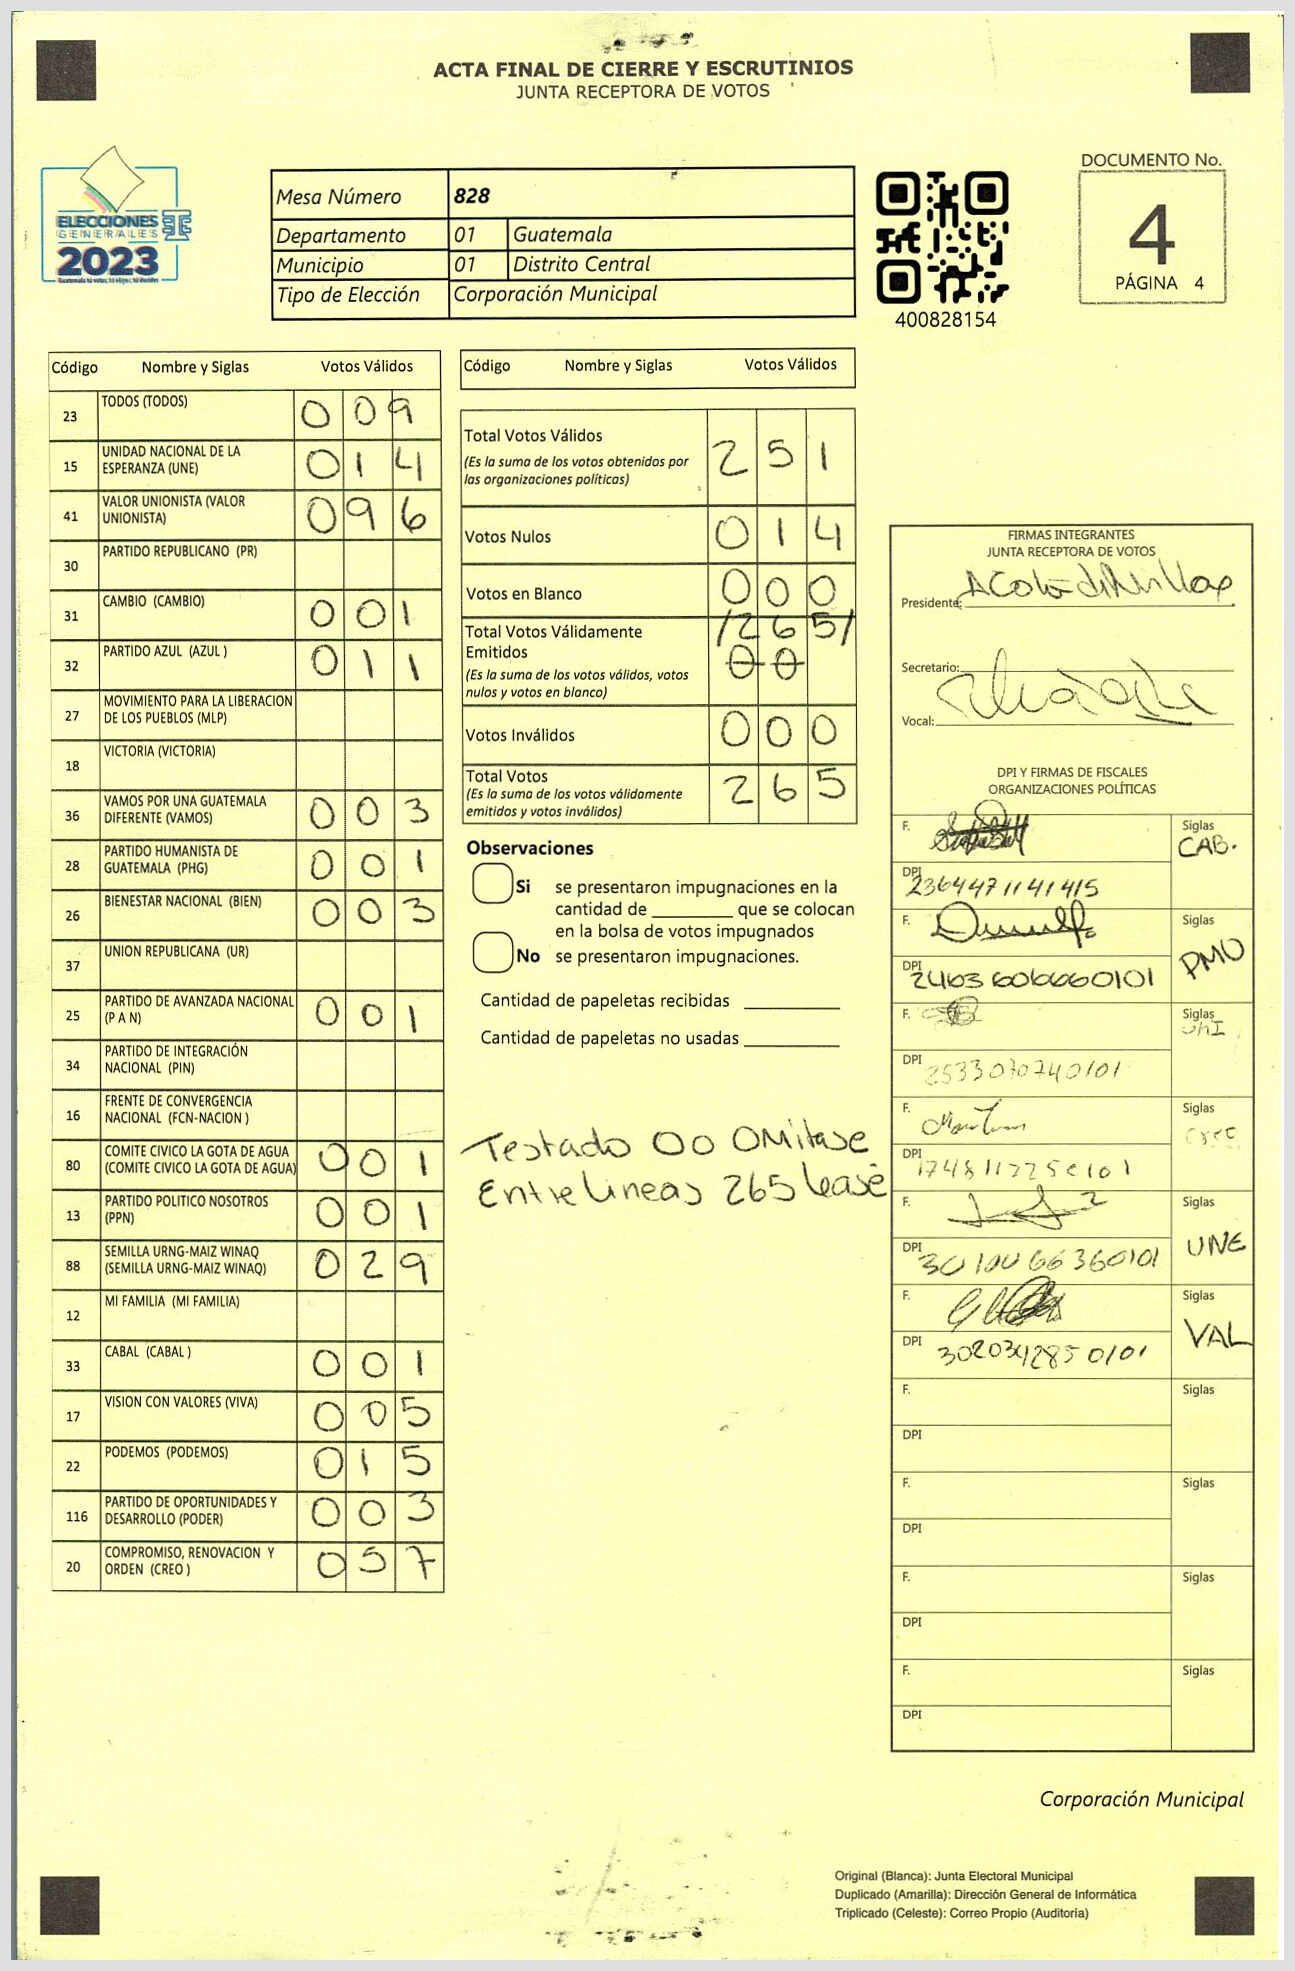 ACTA FINAL DE CIERRE Y ESCRUTINIOS
JUNTA RECEPTORA DE VOTOS
ELECCIONES
GENERALES
2023
Mesa Número 828
Departamento 01 Guatemala
Municipio 01 Distrito Central
Tipo de Elección Corporación Municipal
400828154
DOCUMENTO No.
4
PÁGINA 4
Código Nombre y Siglas Votos Válidos
23 TODOS (TODOS) 0 0 9
15 UNIDAD NACIONAL DE LA
ESPERANZA (UNE) 0 1 4
41 VALOR UNIONISTA (VALOR
UNIONISTA) 0 9 6
30 PARTIDO REPUBLICANO (PR)
31 CAMBIO (CAMBIO) 0 0 1
32 PARTIDO AZUL (AZUL ) 0 1 1
27 MOVIMIENTO PARA LA LIBERACION
DE LOS PUEBLOS (MLP)
18 VICTORIA (VICTORIA)
36 VAMOS POR UNA GUATEMALA
DIFERENTE (VAMOS) 0 0 3
28 PARTIDO HUMANISTA DE
GUATEMALA (PHG) 0 0 1
26 BIENESTAR NACIONAL (BIEN) 0 0 3
37 UNION REPUBLICANA (UR)
25 PARTIDO DE AVANZADA NACIONAL
(P A N) 0 0 1
34 PARTIDO DE INTEGRACIÓN
NACIONAL (PIN)
16 FRENTE DE CONVERGENCIA
NACIONAL (FCN-NACION )
80 COMITE CIVICO LA GOTA DE AGUA
(COMITE CIVICO LA GOTA DE AGUA) 0 0 1
13 PARTIDO POLITICO NOSOTROS
(PPN) 0 0 1
88 SEMILLA URNG-MAIZ WINAQ
(SEMILLA URNG-MAIZ WINAQ) 0 2 9
12 MI FAMILIA (MI FAMILIA)
33 CABAL (CABAL ) 0 0 1
17 VISION CON VALORES (VIVA) 0 0 5
22 PODEMOS (PODEMOS) 0 1 5
116 PARTIDO DE OPORTUNIDADES Y
DESARROLLO (PODER) 0 0 3
20 COMPROMISO, RENOVACION Y
ORDEN (CREO ) 0 5 7
Código Nombre y Siglas Votos Válidos
Total Votos Válidos 2 5 1
(Es la suma de los votos obtenidos por
las organizaciones políticas)
Votos Nulos 0 1 4
Votos en Blanco 0 0 0
Total Votos Válidamente /2 6 5/
Emitidos 0 0
(Es la suma de los votos válidos, votos
nulos y votos en blanco)
Votos Inválidos 0 0 0
Total Votos 2 6 5
(Es la suma de los votos válidamente
emitidos y votos inválidos)
Observaciones
Si se presentaron impugnaciones en la
cantidad de ________ que se colocan
en la bolsa de votos impugnados
No se presentaron impugnaciones.
Cantidad de papeletas recibidas __________
Cantidad de papeletas no usadas __________
Testado 00 OMitase
Entrelineas 265 lease
FIRMAS INTEGRANTES
JUNTA RECEPTORA DE VOTOS
Presidente:
Secretario:
Vocal:
DPI Y FIRMAS DE FISCALES
ORGANIZACIONES POLÍTICAS
F. Siglas
CAB.
DPI 2364471141415
F. Siglas
PMO
DPI
F. Siglas
DPI 2533070740101
F. Siglas
DPI
F. Siglas
UNE
DPI
F. Siglas
VAL
DPI 3020342850101
F. Siglas
DPI
F. Siglas
DPI
F. Siglas
DPI
F. Siglas
DPI
Corporación Municipal
Original (Blanca): Junta Electoral Municipal
Duplicado (Amarilla): Dirección General de Informática
Triplicado (Celeste): Correo Propio (Auditoria)